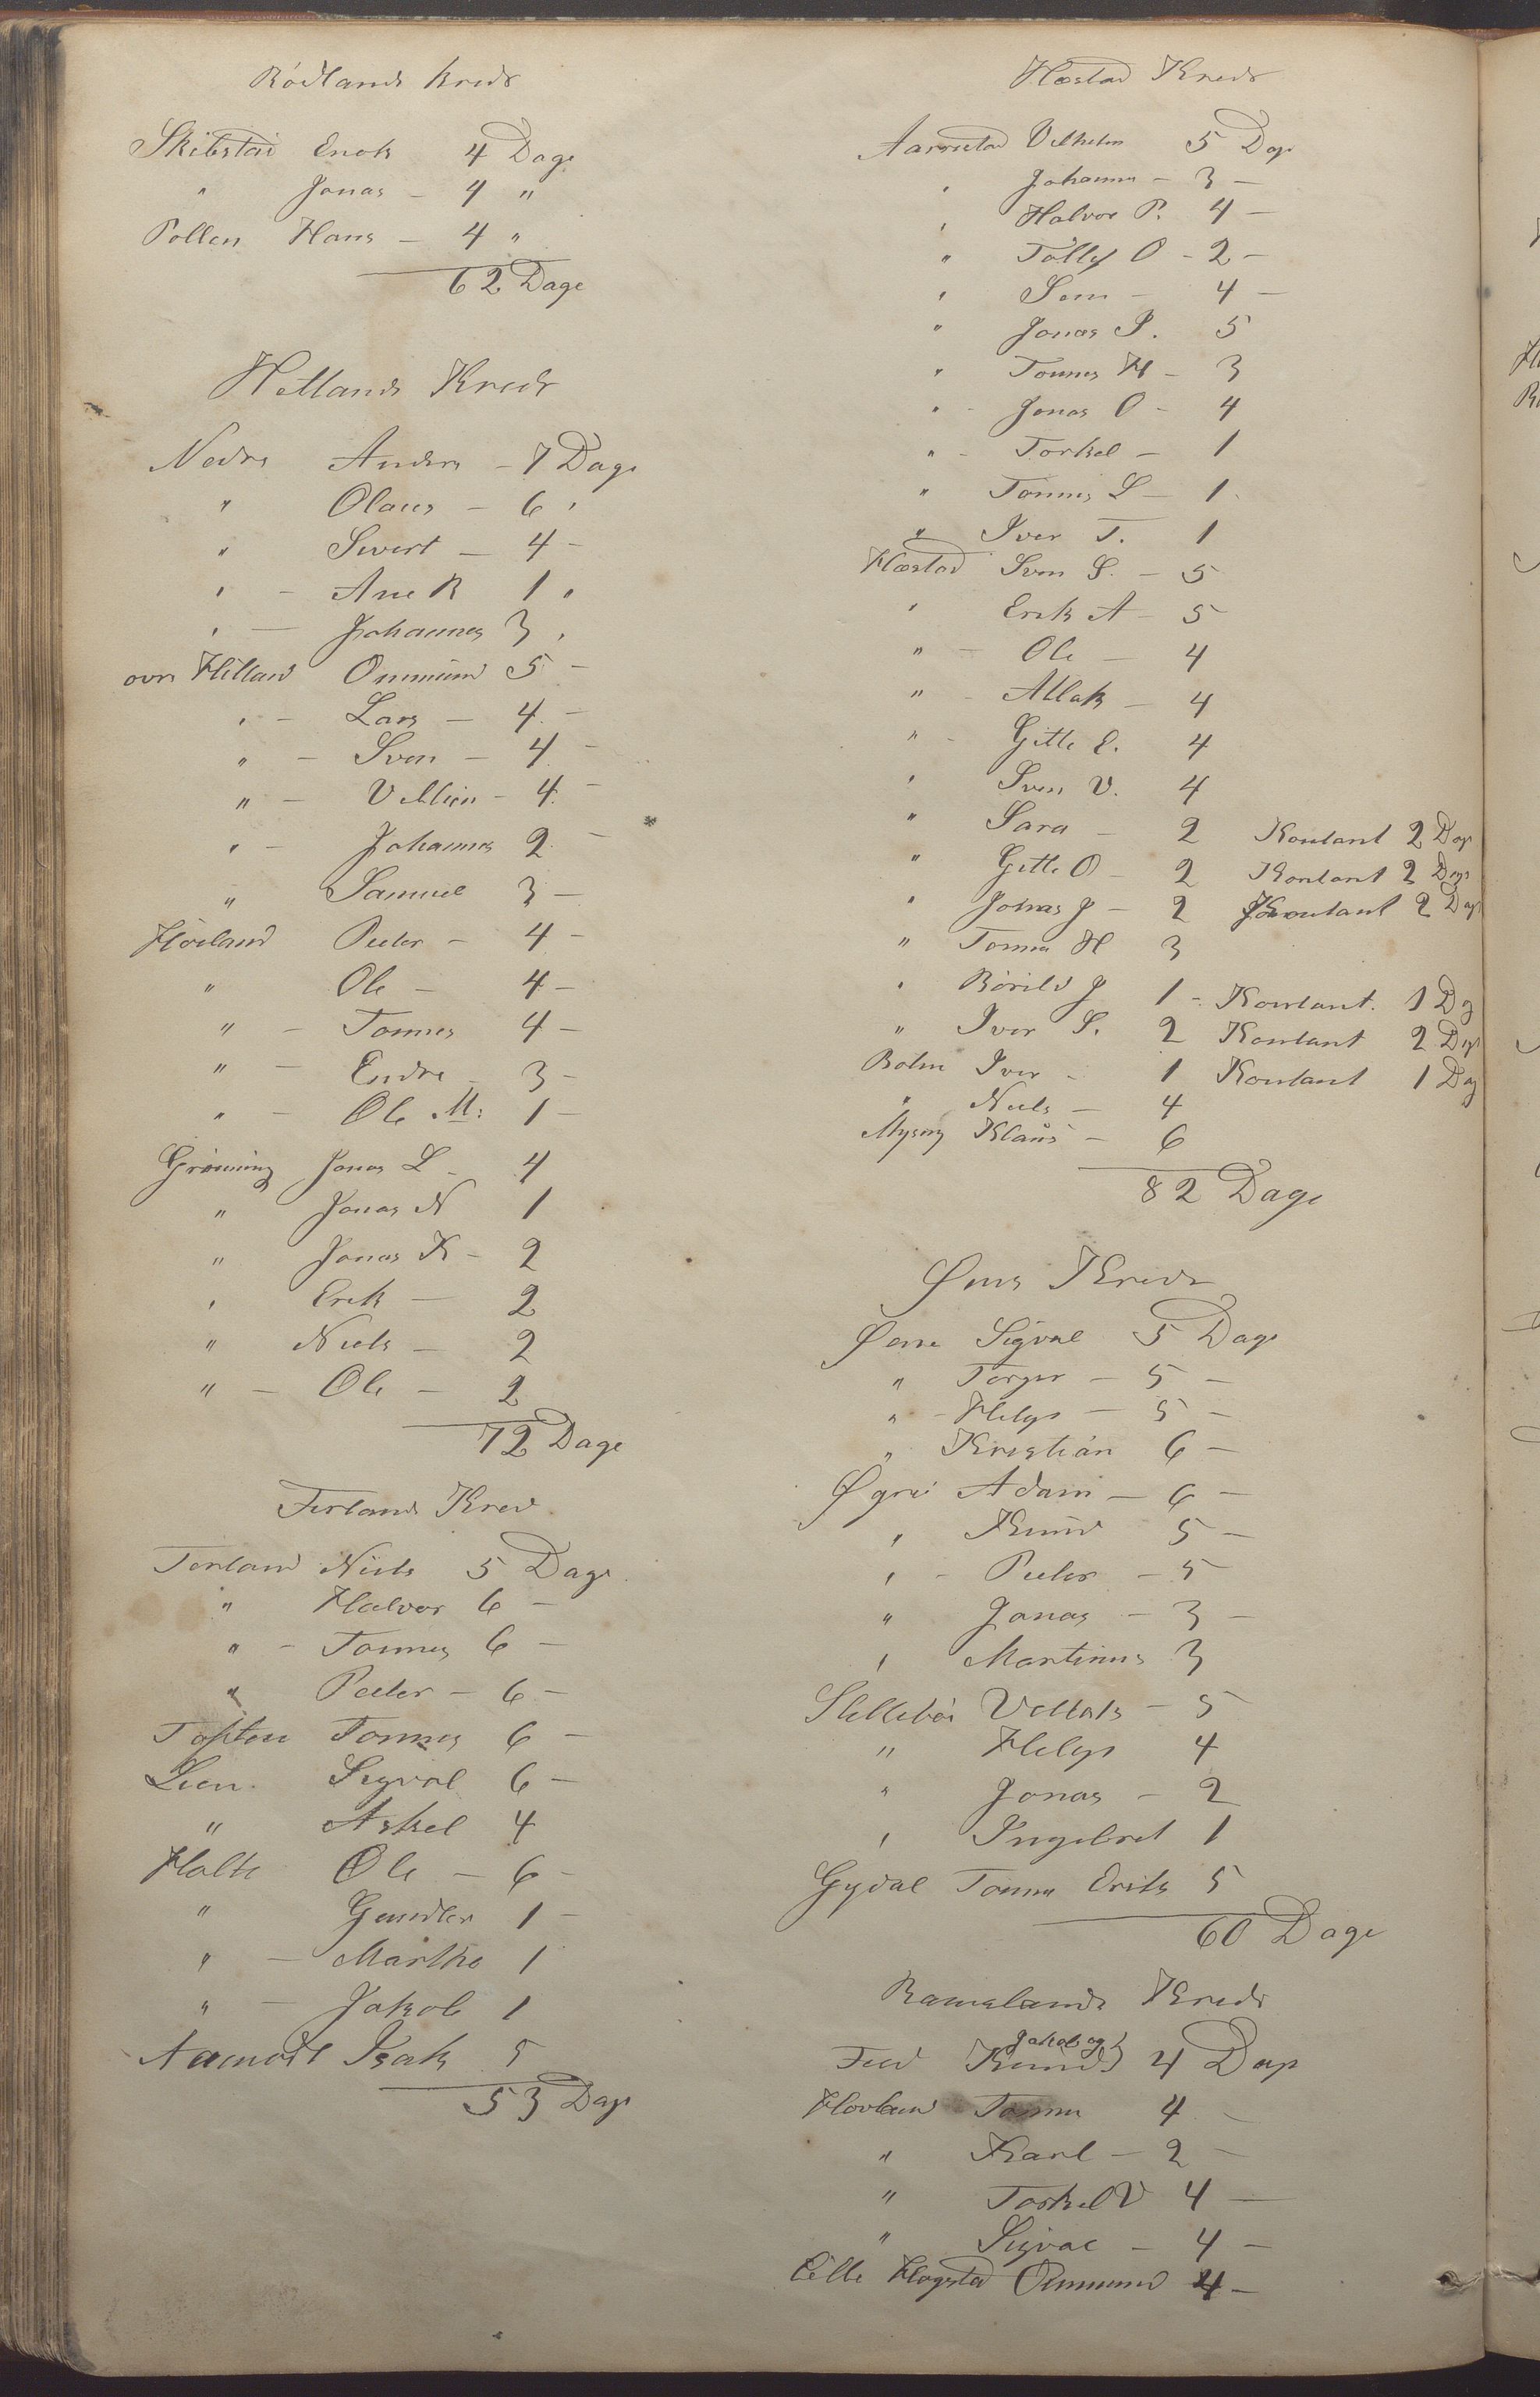 Rödlands Kreds
Skibstad Enok 4 Dage
" Jonas – 4 "
Pollen Hans – 4 "
62 Dage
Hetlands Kreds
Nedre Anders – 7 Dage
" Olaus – 6 "
" Sivert – 4 –
" – Ane R 1 "
" – Johannes 3 "
øvre Hetland Ommund 5 –
" – Lars – 4 –
" – Sven – 4 –
" – Villien – 4 –
" – Johannes 2 –
" Samuel 3 –
Höiland Peder – 4 –
" Ole – 4 –
" – Tonnes 4 –
" – Endre – 3 –
" – Ole M: 1 –
Grönning Jonas L – 4
" Jonas N 1
" Jonas K – 2
" Erik – 2
" Niels – 2
" – Ole – 2
72 Dage
Terlands Kred
Terland Niels 5 Dage
" Halvor 6 –
" – Tonnes 6 –
" Peder – 6 –
Toften Tonnes 6 –
Lien Sigval 6 –
" Askel 4
Holte Ole – 6 –
" Gunder 1 –
" – Martha 1
" – Jakob 1
Aamodt Isak 5
53 Dage
Hæstad Kreds
Aarrestad Vilhelm 5 Dage
" Johannes – 3 –
" Halvor P. 4 –
" Tölles O – 2 –
" Sven – 4 –
" Jonas P. 5
" Tonnes H – 3
" – Jonas O – 4
" – Torkel – 1
" Tönnes L – 1
" Iver T. 1
Hæstad Sven S. – 5
" Erik A – 5
" – Ole – 4
" – Atlak – 4
" – Gitle E. 4
" Sven V. 4
" Sara – 2 Kontant 2 Dage
" Gitle O – 2 Kontant 2 Dage
" Jonas J – 2 Kontant 2 Dage
" Tonnes H 3
" Börild J 1 – Kontant. 1 Dag
" Iver S. 2 Kontant 2 Dage
Botn Iver – 1 Kontant 1 Dag
" Niels – 4
Mysing Klaus – 6
82 Dage
Øens Kreds
Øene Sigval 5 Dage
" Torger – 5 –
" – Helge – 5 –
" Kristian 6 –
Øgrei Adam – 6 –
" Knud 5 –
" – Peder – 5
" Jonas – 3 –
" Martinus 3
Slettebö Vellak – 5
" Helge 4
" Jonas – 2
" Ingebret 1
Gydal Tonnes Eriks 5
60 Dage
Ramslands Kreds
Jakob og
Fed Knud} 4 Dage
Hovland Tonnes 4 –
" Karl – 2 –
" Torkel V 4 –
" Sigval – 4 –
Lille Hogstad Ommund 4 –